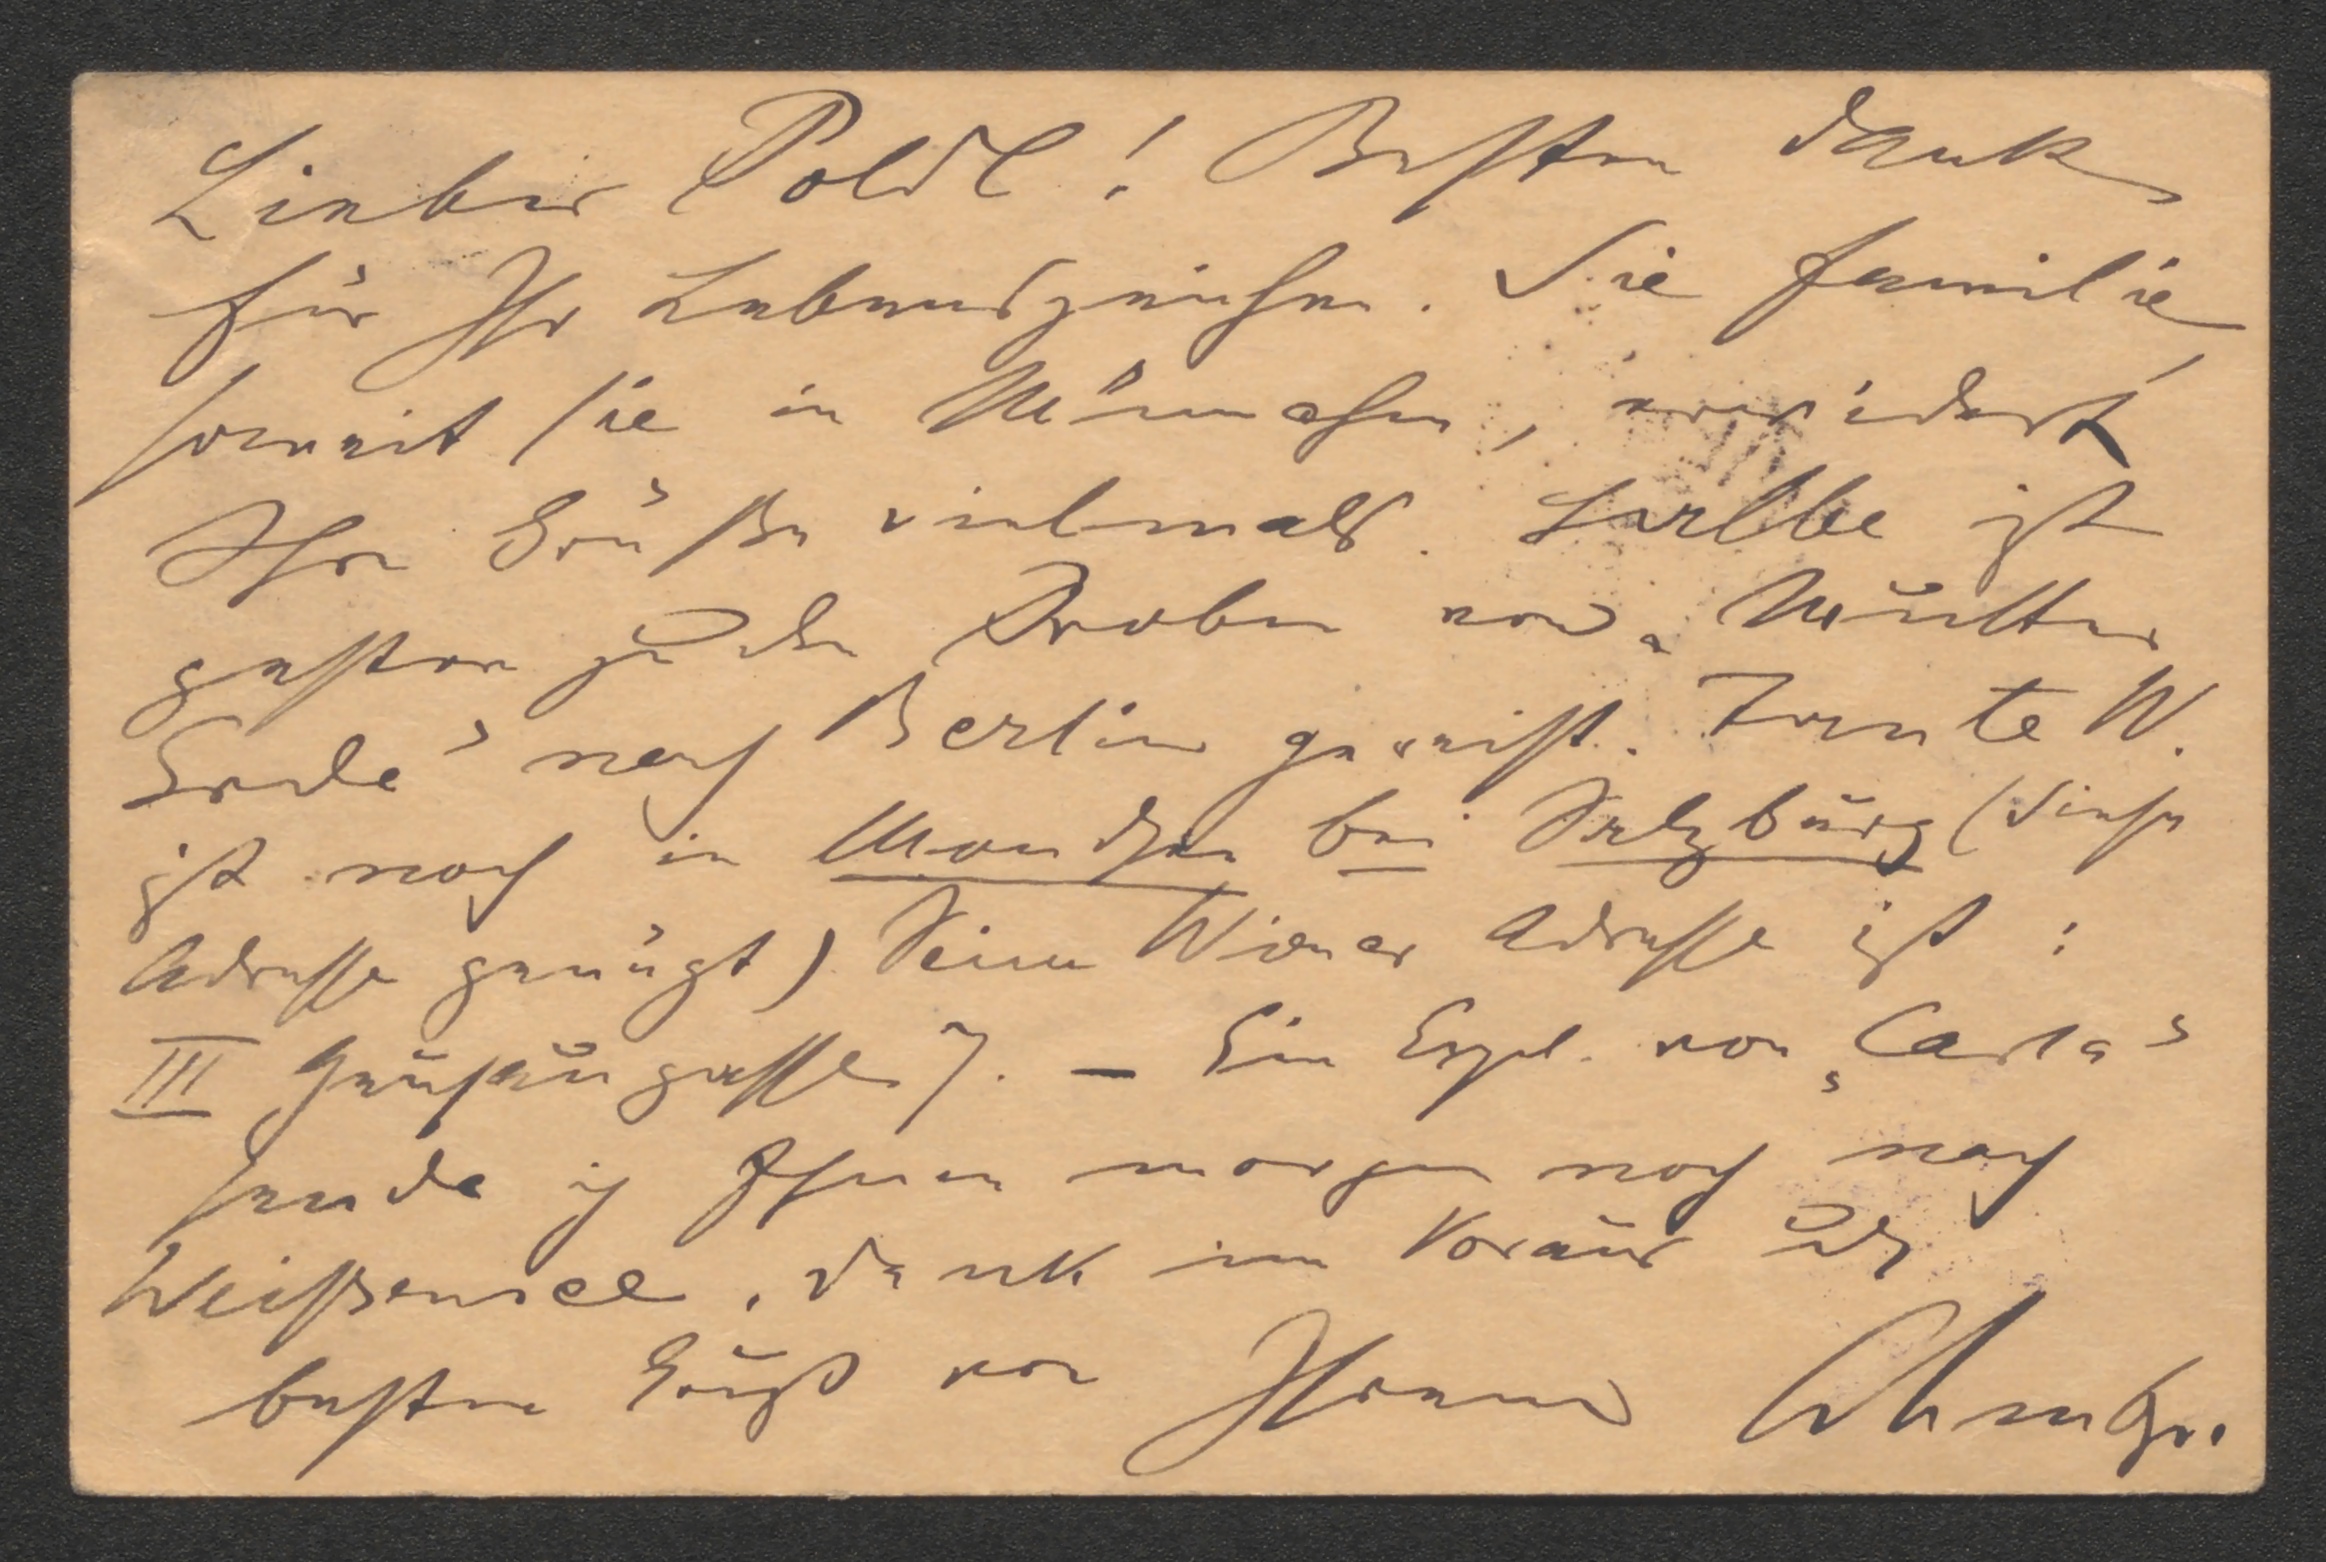 Lieber Poldl! Besten Dank
für Ihr Lebenszeichen. Die Familie
soweit sie in München, erwidert
Ihre Grüße vielmals. Larlbe ist
gestern zu den Proben von „Mutter
Erde" nach Berlin gereist. Trente W.
ist noch in Mondsee bei Salzburg (diese
Adresse genügt) Seine Wiener Adresse ist:
III Geusaugasse 7. – Ein Expl. von „Carla"
sende ich Ihnen morgen noch nach
Weißensee. Dank im Voraus und
besten Gruß von Ihrem